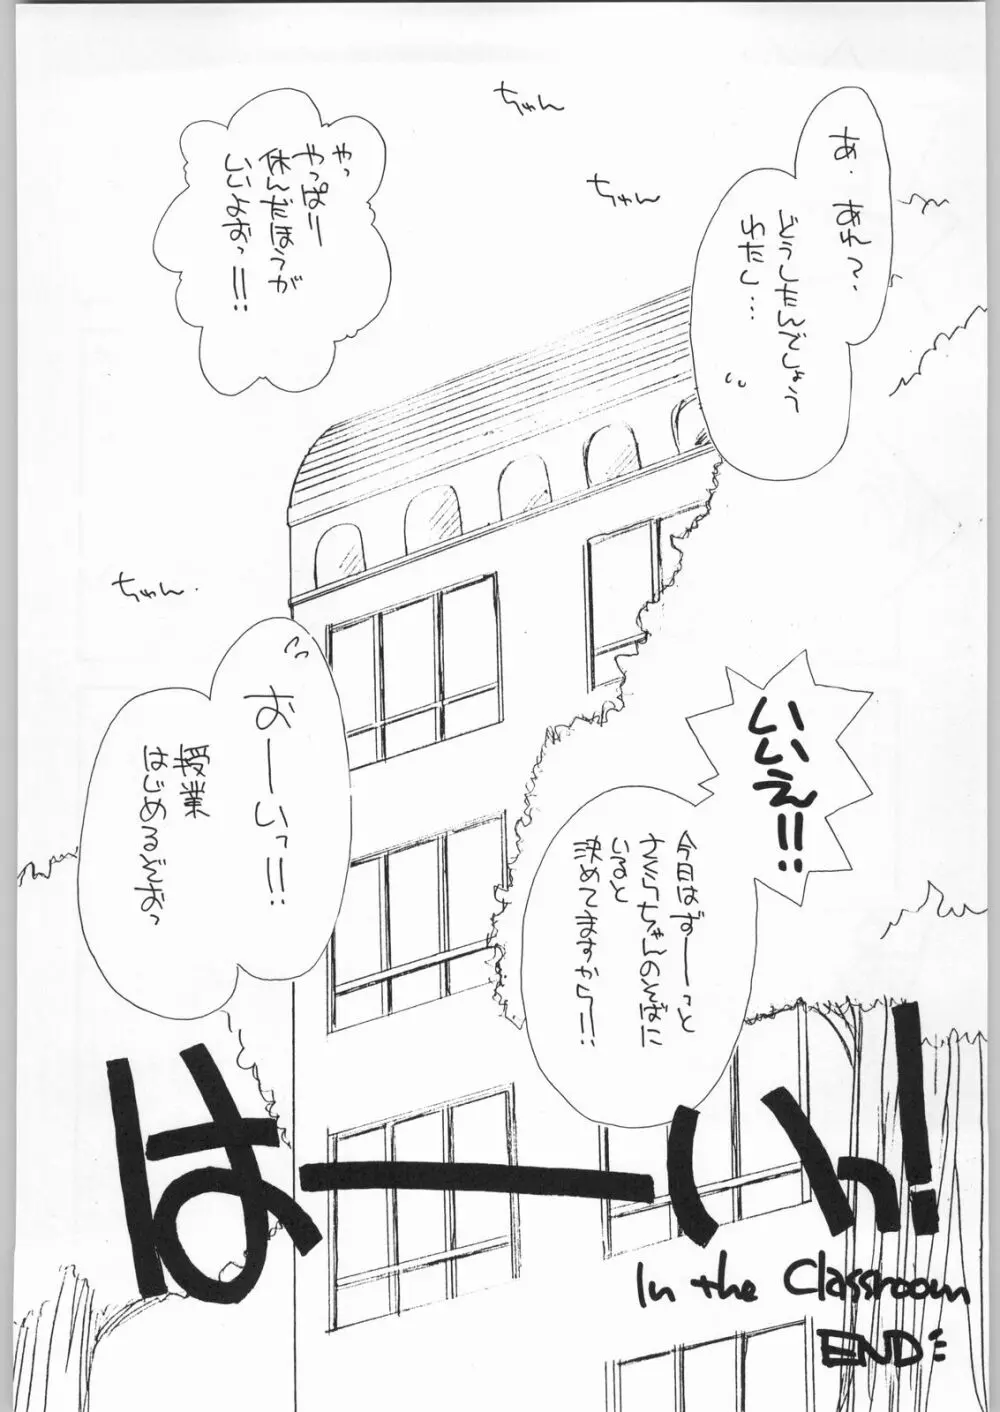 ちゃん
ちゃん
あ、あれ?
どうしたんでしょう
わたし…
やっ
やっぱり
休んだほうが
いいよおっ!!
いいえ!!
今日はずーーっと
さくらちゃんのそばに
いると
決めてますから!!
ちゃん.
おーいっ!!
授業
はじめるぞおっ
はーーいっ!
In the Classroom
END